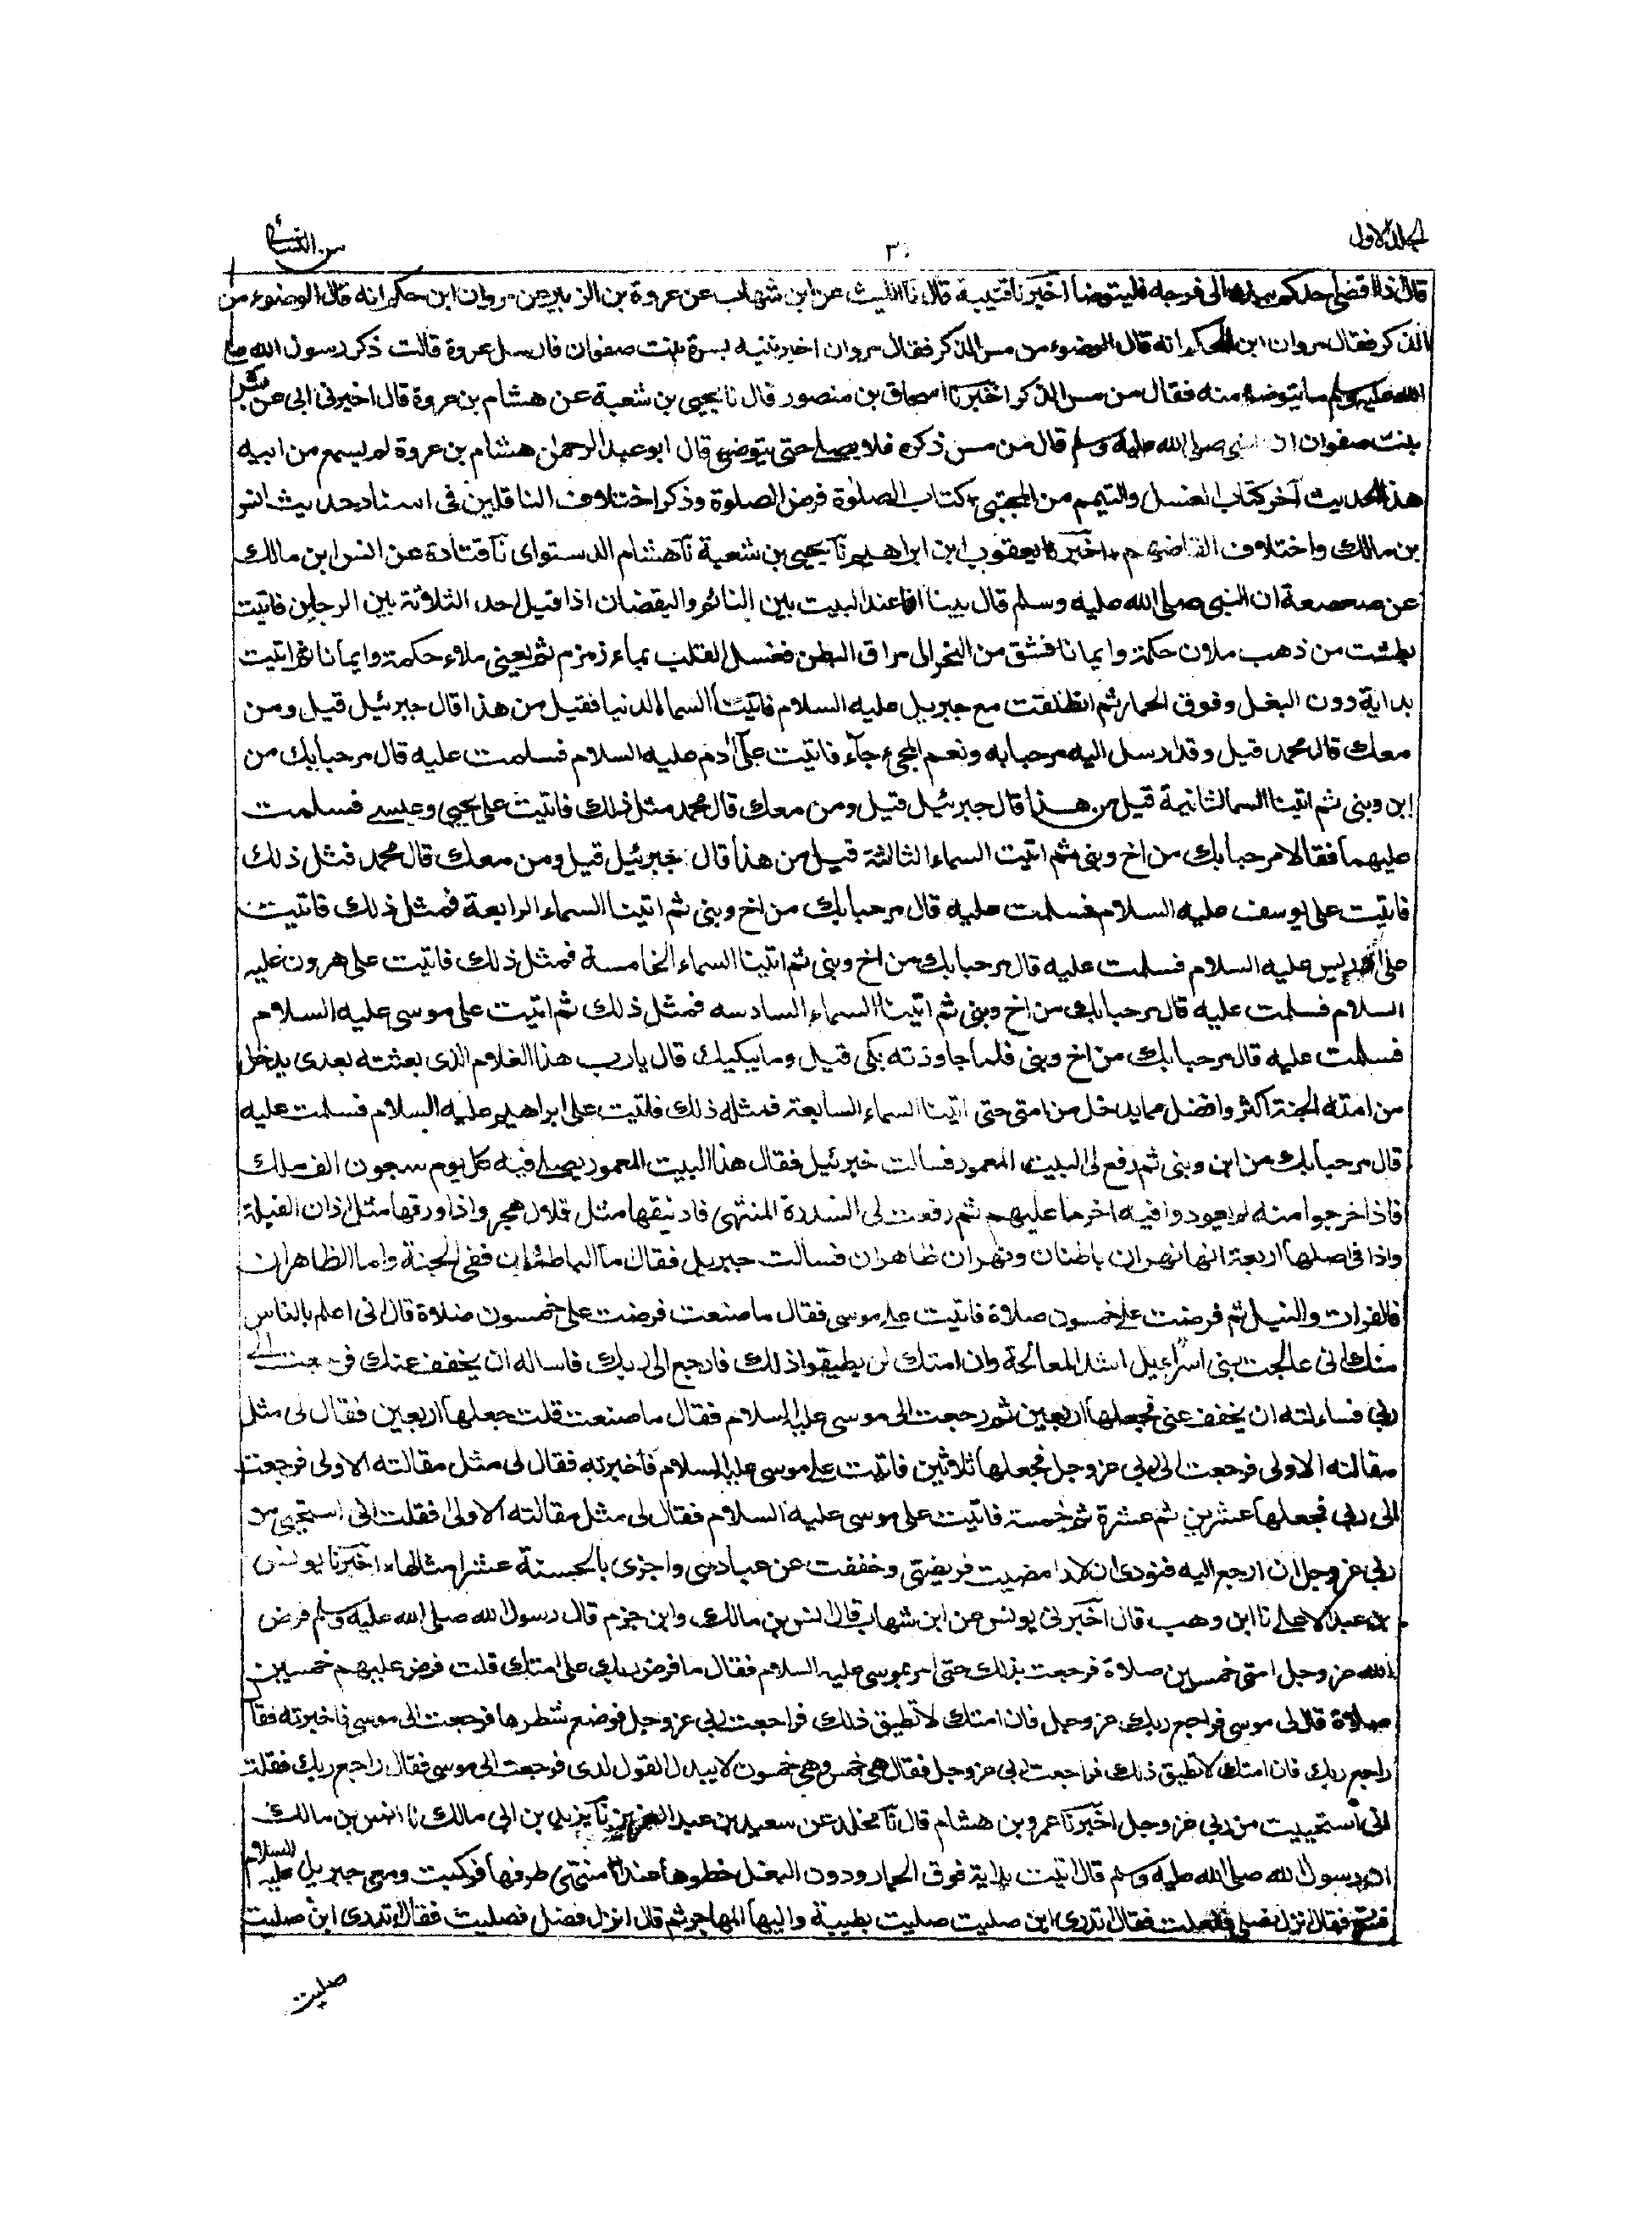 الجلد الاول
٣٠
من النسائي
قال اذا افضى احدكم بيده الى فرجه فليتوضأ اخبرنا قتيبة قال نا الليث عن ابن شهاب عن عروة بن الزبير عن مروان ابن حكم انه قال الوضوء من
الذكر فقال مروان ابن الحكم انه قال الوضوء من مس الذكر فقال مروان اخبرتنيه بسرة بنت صفوان فارسل عروة قالت ذكر رسول الله صلى
الله عليه وسلم ما يتوضأ منه فقال من مس الذكر اخبرنا اسحاق بن منصور قال نا يحيى بن شعبة عن هشام بن عروة قال اخبرنى ابى عن بسرة
بنت صفوان ان النبى صلى الله عليه وسلم قال من مس ذكره فلا يصلے حتى يتوضى قال ابو عبد الرحمن هشام بن عروة لم يسمع من ابيه
هذا الحديث آخر كتاب الغسل والتيمم من المجتبى كتاب الصلوة فرض الصلوة وذكر اختلاف الناقلين فى اسناد حديث انس
بن مالك واختلاف اخبرنا يعقوب ابن ابراهيم نا يحيى بن شعبة نا هشام الدستواى نا قتادة عن انس ابن مالك
عن صعصعة ان النبى صلى الله عليه وسلم قال بينا انا عند البيت بين النائم واليقضان اذا قيل احد الثلاثة بين الرجلين فاتيت
بطشت من ذهب ملان حكمة وايمانا فشق من النحر الى مراق البطن فغسل القلب بماء زمزم ثم يعنى ملاء حكمة وايمانا ثم اتيت
بدابة دون البغل وفوق الحمار ثم انطلقت مع جبريل عليه السلام فاتيت السماء الدنيا فقيل من هذا قال جبرئيل قيل ومن
معك قال محمد قيل وقد ارسل اليه مرحبا به ونعم المجىء جآء فاتيت على ادم عليه السلام فسلمت عليه قال مرحبا بك من
ابن وبنى ثم اتينا السما الثانية قيل من هذا قال جبرئيل قيل ومن معك قال محمد مثل ذلك فاتيت على يحيى وعيسے فسلمت
عليهما فقالا مرحبا بك من اخ وبنى ثم اتيت السماء الثالثة قيل من هذا قال جبرئيل قيل ومن معك قال محمد فمثل ذلك
فاتيت على يوسف عليه السلام فسلمت عليه قال مرحبا بك من اخ وبنى ثم اتينا السماء الرابعة فمثل ذلك فاتيت
على ادريس عليه السلام فسلمت عليه قال مرحبا بك من اخ وبنى ثم اتينا السماء الخامسة فمثل ذلك فاتيت على هرون عليه
السلام فسلمت عليه قال مرحبا بك من اخ وبنى ثم اتينا السماء السادسه فمثل ذلك ثم اتيت على موسى عليه السلام
فسلمت عليه قال مرحبا بك من اخ وبنى فلما جاوذته بكى قيل وما يبكيك قال يا رب هذا الغلام الذى بعثته بعدى يدخل
من امته الجنة اكثر وافضل مما يدخل من امتى حتى اتينا السماء السابعة فمثله ذلك فاتيت على ابراهيم عليه السلام فسلمت عليه
قال مرحبا بك من ابن وبنى ثم رفع لى البيت المعمور فسالت خبرئيل فقال هذا البيت المعمور يصلے فيه كل يوم سبعون الف ملك
فاذا خرجوا منه لم يعودوا فيه اخر ما عليهم ثم رفعت لى السدرة المنتهى فاد نبقها مثل قلال هجر واذا ورقها مثل اذان الفيلة
واذا فى اصلها اربعة انهار نهران باطنان ونهران ظاهران فسالت جبريل فقال ما الباطنان ففى الجنة واما الظاهران
فالفرات والنيل ثم فرضت على خمسون صلاة فاتيت علے موسى فقال ما صنعت فرضت على خمسون صلاة قال انى اعلم بالناس
منك انى عالجت بنى اسرائيل اشد المعالجة وان امتك لن يطيقوا ذلك فارجع الى ربك فاساله ان يخفف عنك فرجعت الى
ربى فساءلته ان يخفف عنى فجعلها اربعين ثم رجعت الى موسى عليه السلام فقال ما صنعت قلت جعلها اربعين فقال لى مثل
مقالته الاولى فرجعت الى ربى عز وجل فجعلها ثلاثين فاتيت علے موسى عليه السلام فاخبرته فقال لى مثل مقالته الاولى فرجعت
الى ربى فجعلها عشرين ثم عشرة ثم خمسة فاتيت على موسى عليه السلام فقال لى مثل مقالته الاولى فقلت انى استحيى من
ربى عز وجل ان ارجع اليه فنودى ان قد امضيت فريضتى وخففت عن عبادى واجزى بالحسنة عشر امثالها اخبرنا يونس
بن عبد الاعلے نا ابن وهب قال اخبرنى يونس عن ابن شهاب قال انس بن مالك وابن حزم قال رسول الله صلى الله عليه وسلم فرض
الله عز وجل امتى خمسين صلاة فرجعت بذلك حتى امر بموسى عليه السلام فقال ما فرض ربك على امتك قلت فرض عليهم خمسين
صلاة قال لى موسى فراجع ربك عز وجل فان امتك لا تطيق ذلك فراجعت ربى عز وجل فوضع شطرها فرجعت الى موسى فاخبرته فقال
راجع ربك فان امتك لا تطيق ذلك فراجعت ربى عز وجل فقال هى خمس وهى خمسون لا يبدل القول لدى فرجعت الى موسى فقال راجع ربك فقلت
انى استحييت من ربى عز وجل اخبرنا عمرو بن هشام قال نا مخلد عن سعيد بن عبد العزيز نا يزيد بن ابى مالك نا انس بن مالك
ان رسول الله صلى الله عليه وسلم قال اتيت بدابة فوق الحمار ودون البغل خطوها عند منتهى طرفها فركبت ومعى جبريل عليه السلام
فقال انزل فصل ففعلت فقال اتدرى اين صليت صليت بطيبة واليها المهاجر ثم قال انزل فصل فصليت فقال اتدرى اين صليت
صليت